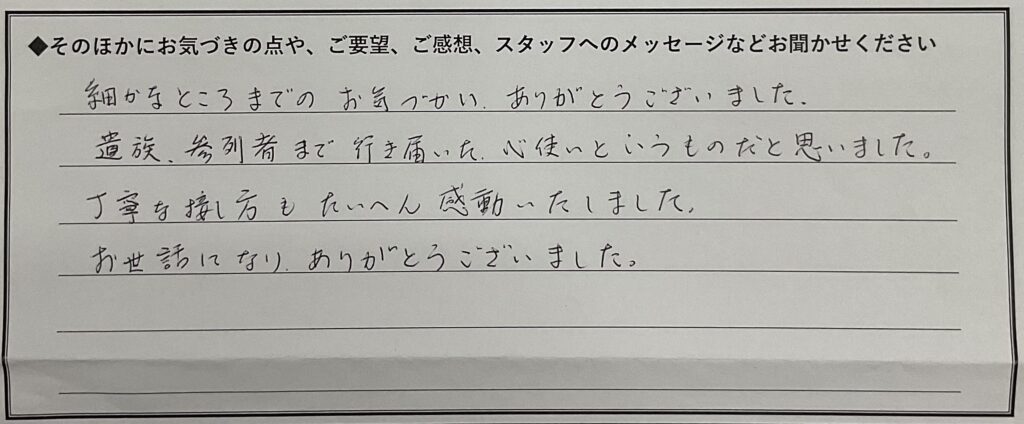 ◆そのほかにお気づきの点や、ご要望、ご感想、スタッフへのメッセージなどお聞かせください
細かなところまでの お気づかい、ありがとうございました。
遺族、参列者まで 行き届いた、心使いというものだと思いました。
丁寧な接し方も たいへん 感動いたしました。
お世話になり、ありがとうございました。